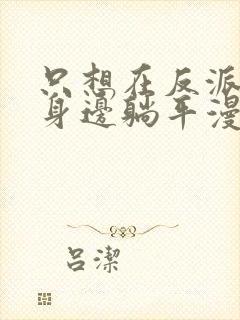 只想在反派
身邊躺平漫
呂潔